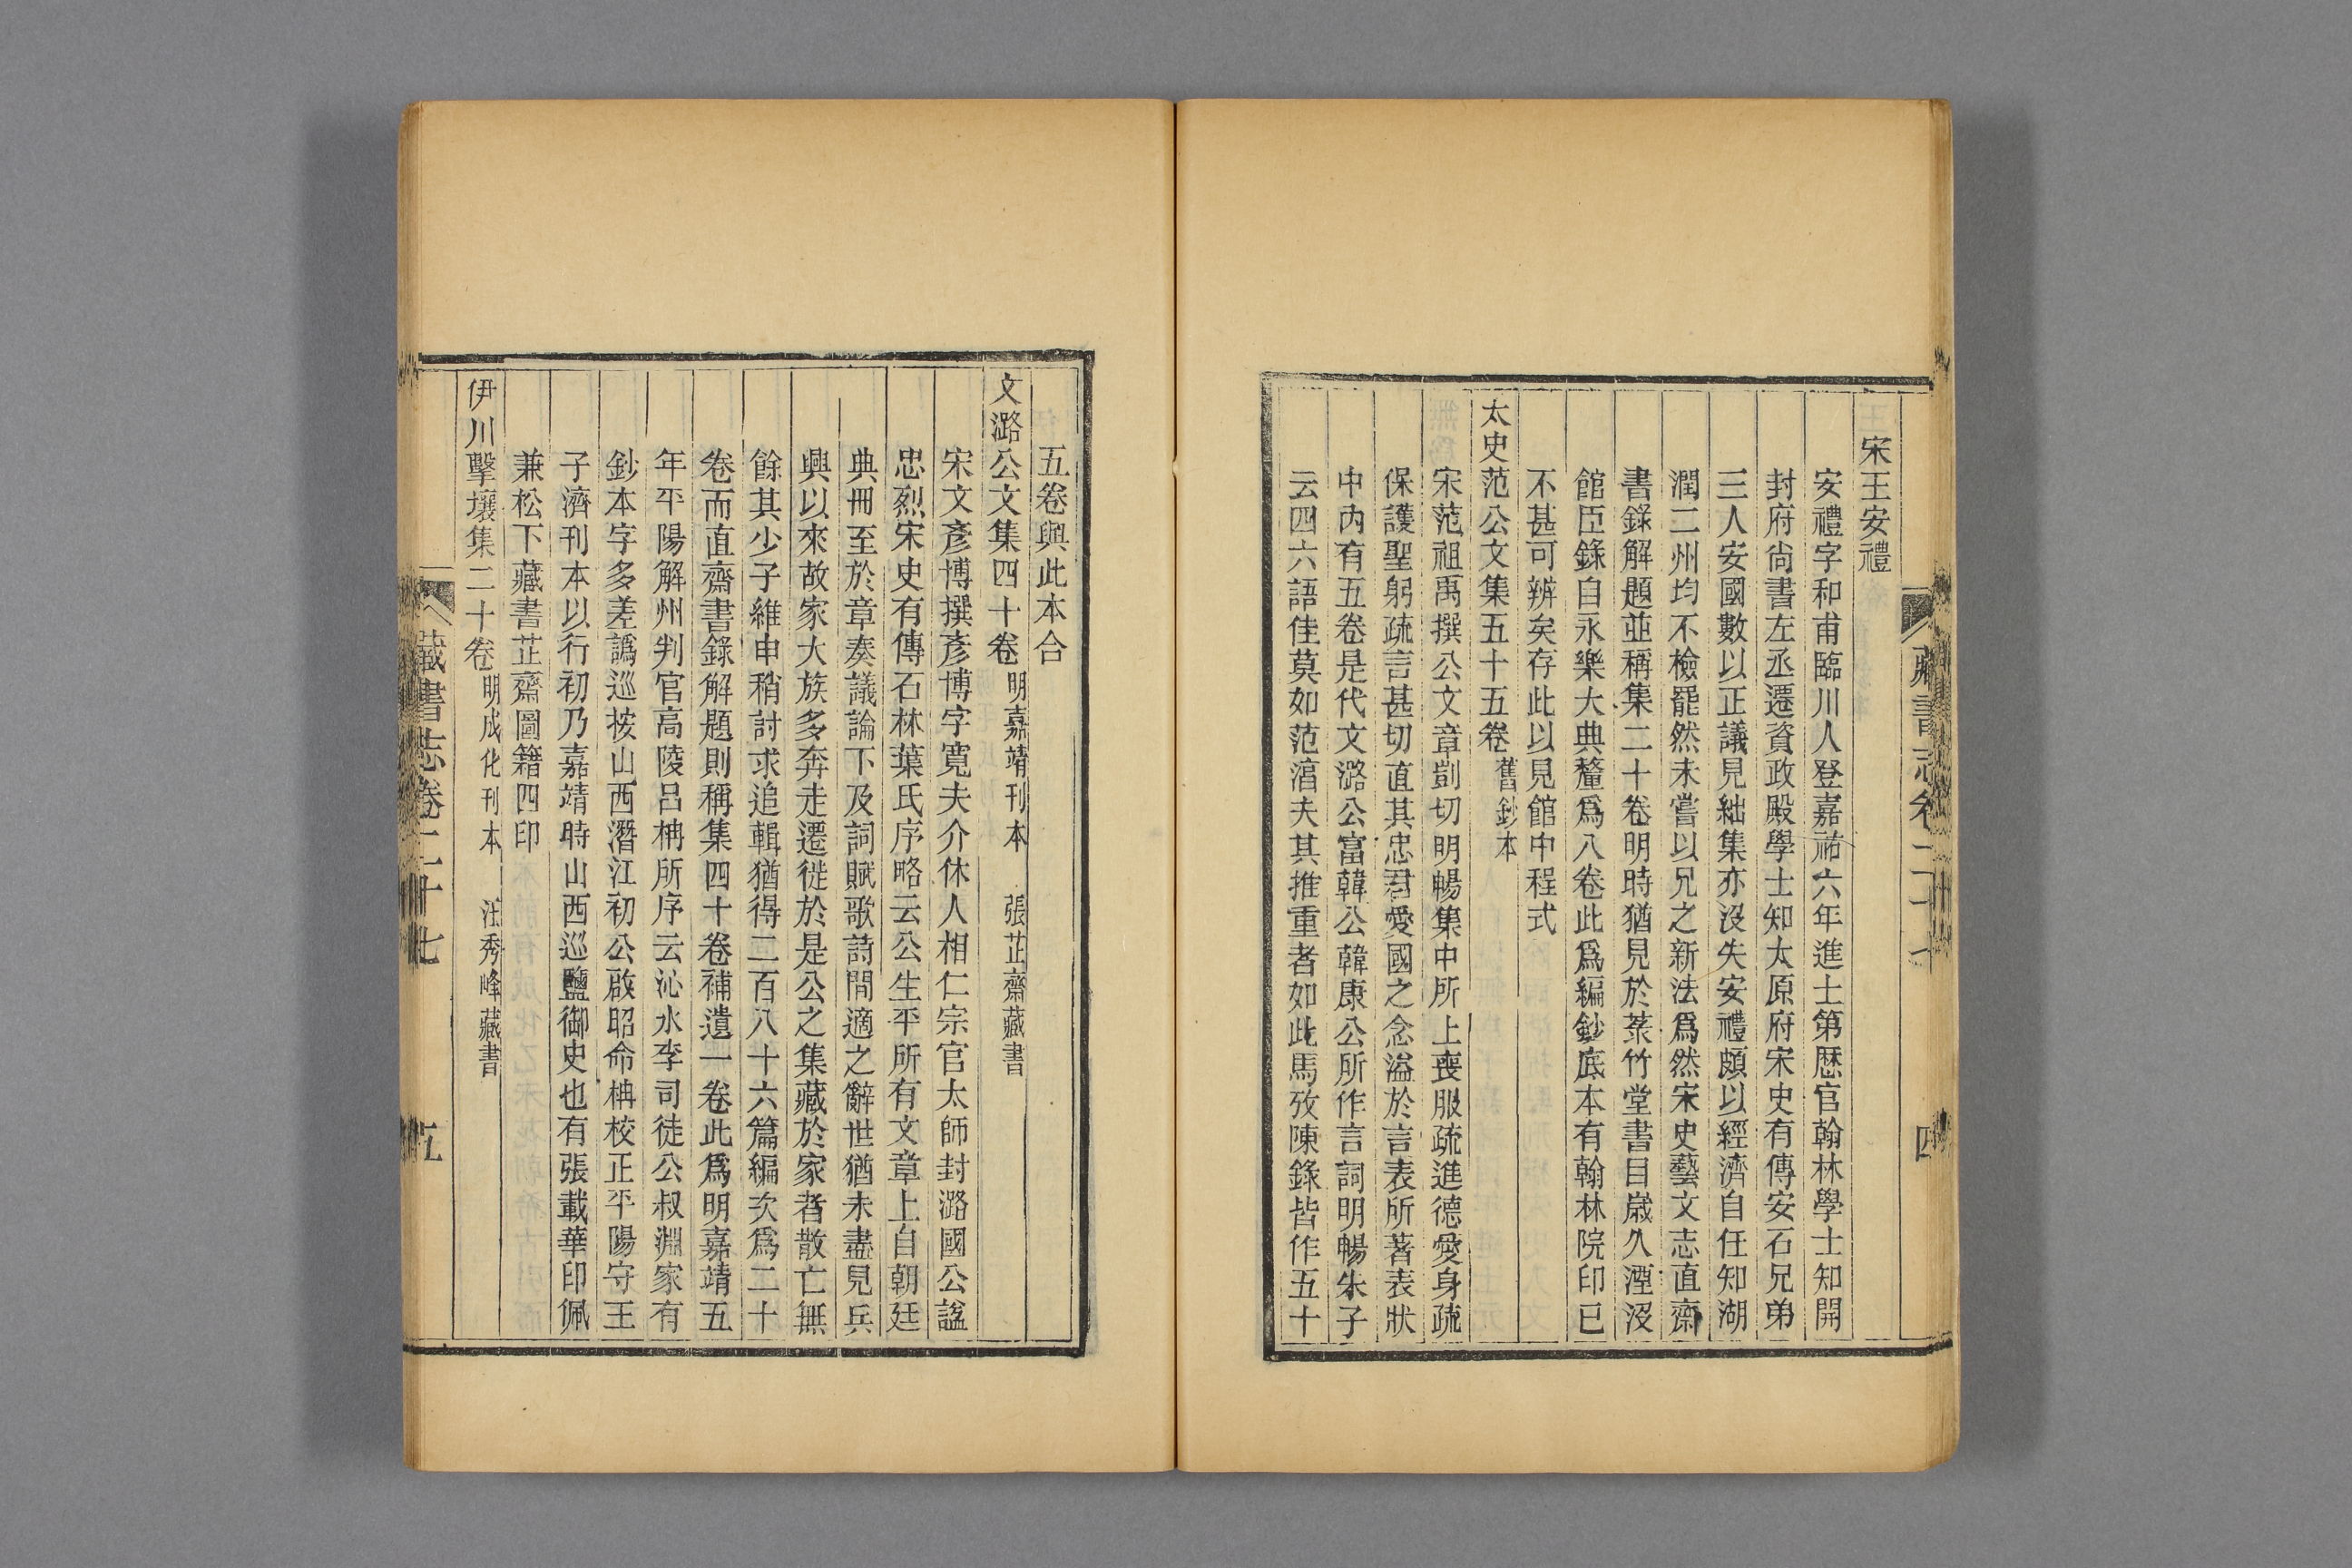 宋王安禮
安禮字和甫臨川人登嘉祐六年進士第歷官翰林學士知開
封府尚書左丞遷資政殿學士知太原府宋史有傳安石兄弟
三人安國數以正議見絀集亦沒失安禮頗以經濟自任知湖
潤二州均不檢罷然未嘗以兄之新法爲然宋史藝文志直齋
書錄解題並稱集二十卷明時猶見於菉竹堂書目歲久湮沒
館臣錄自永樂大典釐爲八卷此爲編鈔底本有翰林院印已
不甚可辨矣存此以見館中程式
太史范公文集五十五卷 舊鈔本
宋范祖禹撰公文章剴切明暢集中所上喪服疏進德愛身疏
保護聖躬疏言甚切直其忠君愛國之念溢於言表所著表狀
中內有五卷是代文潞公富韓公韓康公所作言詞明暢朱子
云四六語佳莫如范淳夫其推重者如此馬攷陳錄皆作五十
藏書志卷二十七
四
五卷與此本合
文潞公文集四十卷 明嘉靖刊本 張芷齋藏書
宋文彥博撰彥博字寬夫介休人相仁宗官太師封潞國公諡
忠烈宋史有傳石林葉氏序略云公生平所有文章上自朝廷
典冊至於章奏議論下及詞賦歌詩閒適之辭世猶未盡見兵
興以來故家大族多奔走遷徙於是公之集藏於家者散亡無
餘其少子維申稍討求追輯猶得二百八十六篇編次爲二十
卷而直齋書錄解題則稱集四十卷補遺一卷此爲明嘉靖五
年平陽解州判官高陵呂柟所序云沁水李司徒公叔淵家有
鈔本字多差譌巡按山西潛江初公啟昭命柟校正平陽守王
子濟刊本以行初乃嘉靖時山西巡鹽御史也有張載華印佩
兼松下藏書芷齋圖籍四印
伊川擊壤集二十卷 明成化刊本 汪秀峰藏書
藏書志卷二十七
五